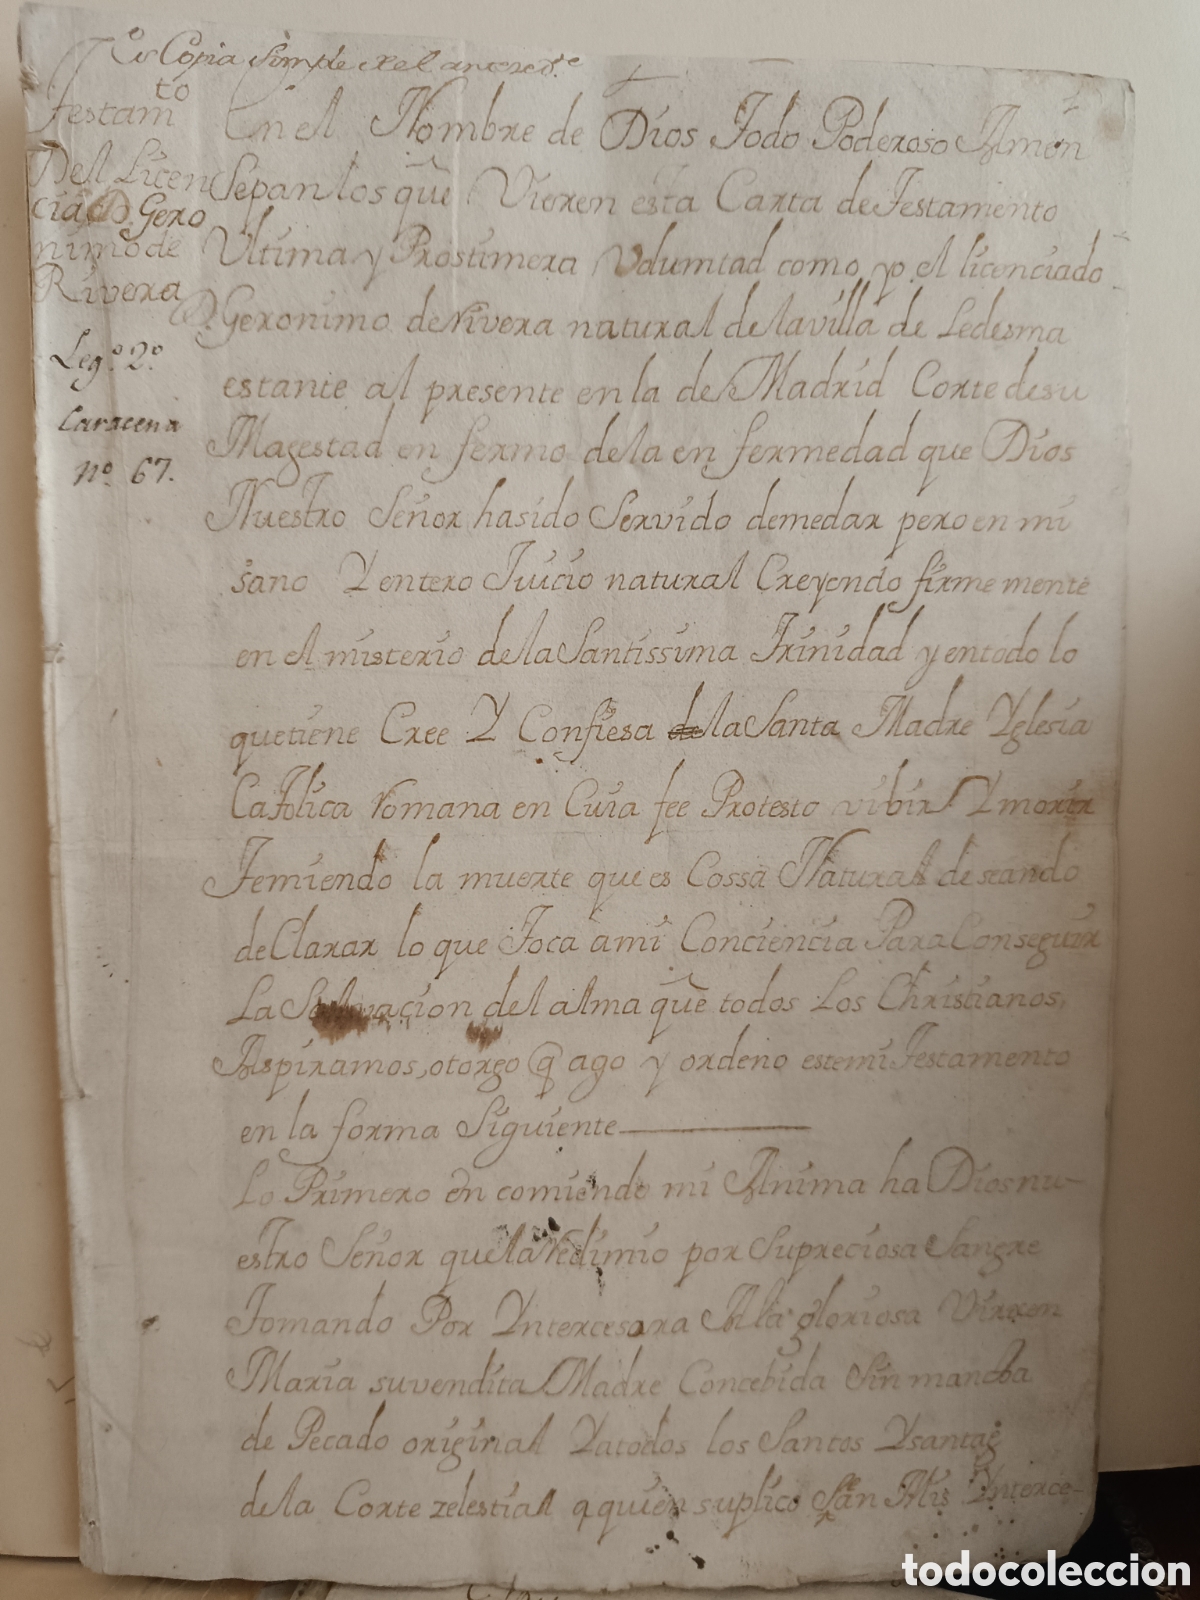 Es Copia simple del antezed.te
Testam.to
Del Licen
ciado D. Gero
nimo de
Rivera
Leg.o 2.o
Caracena
n.o 67.
En el Nombre de Dios Todo Poderoso Amen
Sepan los que Vieren esta Carta de Testamento
Ultima y Prostimera Volumtad como yo el licenciado
D. Geronimo de Rivera natural de la villa de Ledesma
estante al presente en la de Madrid Corte de su
Magestad en fermo de la en fermedad que Dios
Nuestro Señor ha sido Servido de me dar pero en mi
sano Y entero Juicio natural Creyendo firme mente
en el misterio de la Santissima Trinidad y en todo lo
que tiene Cree Y Confiesa de la Santa Madre Yglesia
Catolica romana en Cuia fee Protesto vibir Y morir
Temiendo la muerte que es Cossa Natural deseando
de Clarar lo que Toca a mi Conciencia Para Conseguir
La Salvacion del alma que todos Los Christianos,
Aspiramos, otorgo q ago y ordeno este mi Testamento
en la forma Siguiente
Lo Primero en comiendo mi Anima ha Dios nu-
estro Señor que la redimio por su preciosa Sangre
Tomando Por Yntercesora A la gloriosa Virxen
Maria su vendita Madre Concebida Sin mancha
de Pecado original Y a todos los Santos Y santas
de la Corte zelestial a quien suplico Sean Mis Yntercè-
todocoleccion